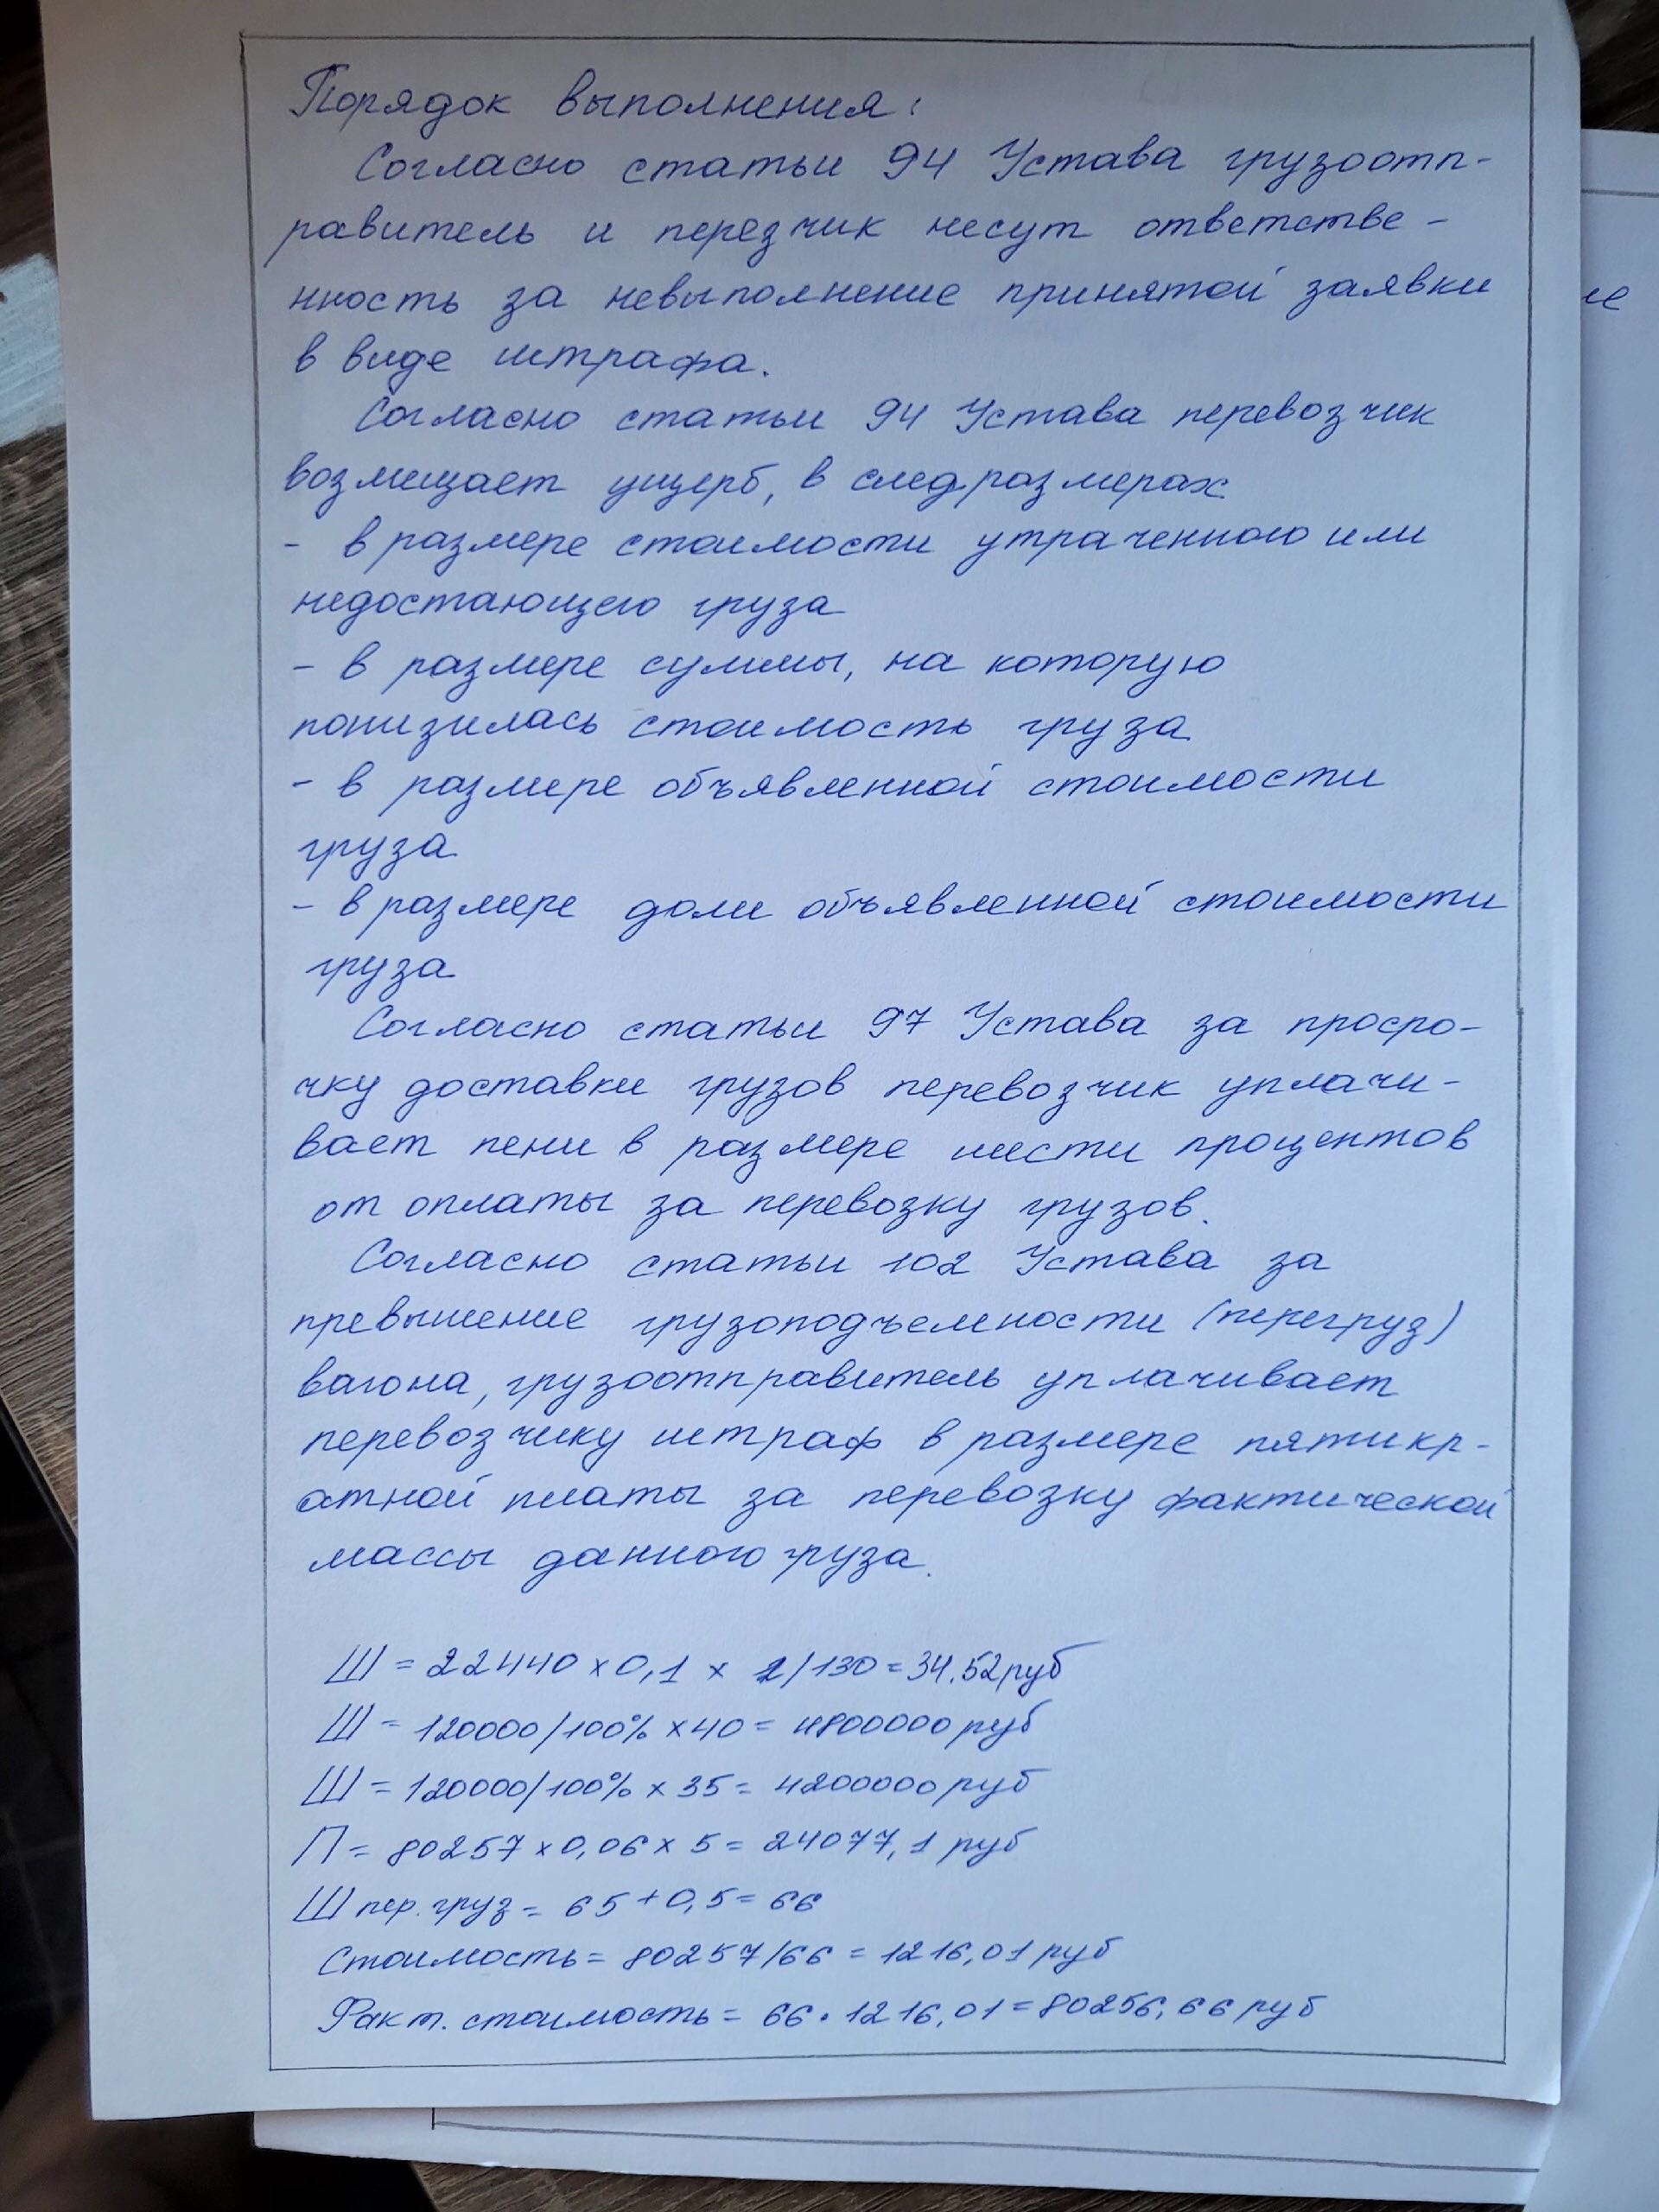 Порядок выполнения:
Согласно статьи 94 Устава грузоотп-
равитель и перезчик несут ответстве-
нность за невыполнение принятой заявки
в виде штрафа.
Согласно статьи 94 Устава перевозчик
возмещает ущерб, в след размерах
- в размере стоимости утраченного или
недостающего груза
- в размере суммы, на которую
понизилась стоимость груза
- в размере объявленной стоимости
груза
- в размере доли объявленной стоимости
груза
Согласно статьи 97 Устава за просро-
чку доставки грузов перевозчик уплачи-
вает пени в размере шести процентов
от оплаты за перевозку грузов.
Согласно статьи 102 Устава за
превышение грузоподъемности (перегруз)
вагона, грузоотправитель уплачивает
перевозчику штраф в размере пятикр-
атной платы за перевозку фактической
массы данного груза.
Ш = 22440 × 0,1 × 2/130 = 34,52 руб
Ш = 120000/100% × 40 = 4800000 руб
Ш = 120000/100% × 35 = 4200000 руб
П = 80257 × 0,06 × 5 = 24077,1 руб
Ш пер. груз = 65 + 0,5 = 66
Стоимость = 80257/66 = 1216,01 руб
Факт. стоимость = 66 · 1216,01 = 80256,66 руб